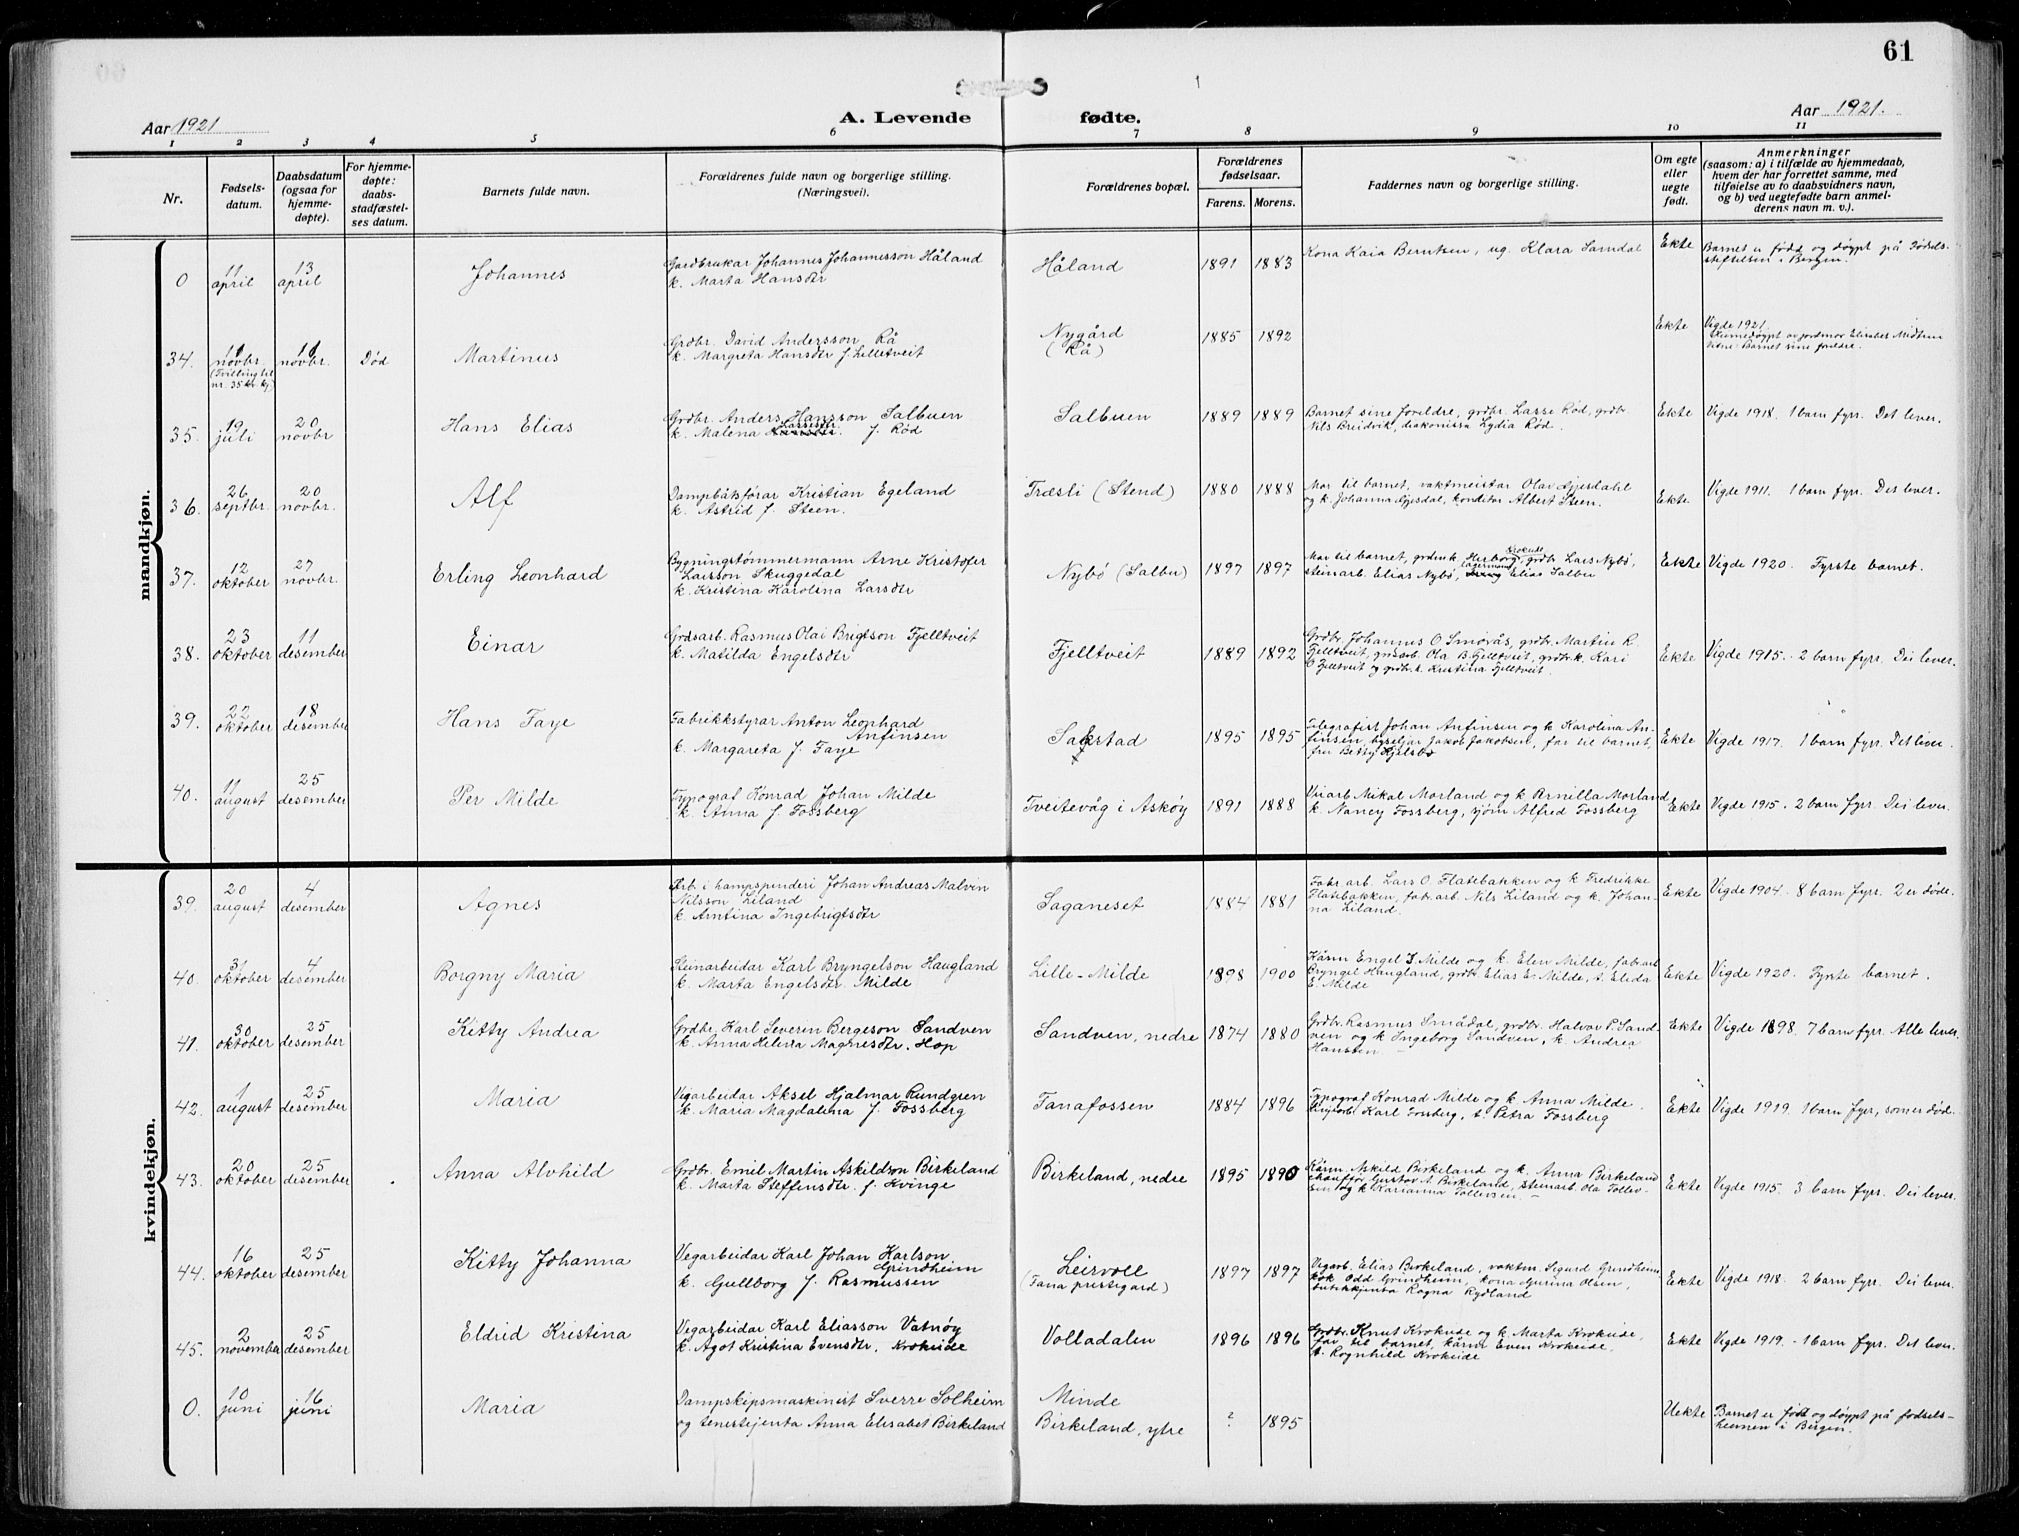 61
Aar 1921
A. Levende fødte.
Aar 1921.
1 2 3 4 5 6 7 8 9 10 11
Nr.
Fødsels-
datum.
Daabsdatum
(ogsaa for
hjemme-
døpte).
For hjemme-
døpte:
daabs-
stadfæstel-
ses datum.
Barnets fulde navn.
Forældrenes fulde navn og borgerlige stilling.
(Næringsvei).
Forældrenes bopæl.
Forældrenes
fødselsaar.
Farens. Morens.
Faddernes navn og borgerlige stilling.
Om egte
eller
uegte
født.
Anmerkninger
(saasom: a) i tilfælde av hjemmedaab,
hvem der har forrettet samme, med
tilføielse av to daabsvidners navn,
og b) ved uegtefødte barn anmel-
derens navn m. v.).
mandkjøn.
0
11
april
13
april
Johannes
Gardbrukar Johannes Johannesson Håland
k. Marta Hansdtr
Håland
1891 1883
Kona Kaia Berntsen, ug. Klara Samdal
Ekte
Barnet er født og døypt på Fødsels-
stiftelsen i Bergen.
34.
11
novbr.
(Tvilling til
nr. 35 kv. kj.)
11
novbr.
Død
Martinus
Grdbr. David Andersson Rå
k. Margreta Hansdtr f. Lilletveit
Nygård
(Rå)
1885 1892
Ekte
Vigde 1921
Heimedøypt av jordmor Elisabet Midttun
Vitne: Barnet sine foreldre.
35.
19
juli
20
novbr
Hans Elias
Grdbr. Anders Hansson Salbuen
k. Malena Larsesdtr. f. Rød
Salbuen
1889 1889
Barnet sine foreldre, grdbr. Lasse Rød, grdbr
Nils Breidvik, diakonissa Lydia Rød.
Ekte
Vigde 1918. 1 barn fyrr. Det lever.
36.
26
septbr.
20
novbr.
Alf
Dampbåtsførar Kristian Egeland
k. Astrid f. Steen.
Træsli (Stend)
1880 1888
Mor til barnet, vaktmeistar Olav Gjesdahl
og k. Johanna Gjesdal, konditor Albert Steen.
Ekte.
Vigde 1911. 1 barn fyrr. Det lever.
37.
12
oktober
27
novbr.
Erling Leonhard
Bygningstømmermann Arne Kristofer
Larsson Skuggedal
k. Kristina Karolina Larsdtr
Nybø (Salbu)
1897 1897
Mor til barnet, grdm.k. Herborg Krokeide, grdbr Lars Nybø,
steinarb. Elias Nybø, Elias Salbu
Ekte
Vigde 1920. Fyrste barnet.
38.
23
oktober
11
desember
Einar
Grdsarb. Rasmus Olai Brigtson Fjelltveit
k. Matilda Engelsdtr
Fjelltveit
1889 1892
Grdbr. Johannes O Smørås, grdbr. Martin R.
Fjelltveit, grdsarb. Ola B. Fjelltveit, grdbr.k. Kari
O Fjelltveit og grdbr.t. Kristina Fjelltveit.
Ekte
Vigde 1915. 2 barn fyrr. Dei lever.
39.
22
oktober
18
desember
Hans Faye
Fabrikkstyrar Anton Leonhard
Anfinsen
k. Margareta f. Faye
1895 1895
Telegrafist Johan Anfinsen og k Karolina An-
finsen, byseljar Jakob Jakobsen, far til barnet,
fru Betsy Kjelsbø
Ekte
Vigde 1917. 1 barn fyrr. Det liver.
40.
11
august
25
desember
Per Milde
Typograf Konrad Johan Milde
k. Anna f. Fossberg
Tveitevåg i Askøy
1891 1888
Visarb Mikal Morland og k Pernilla Morland
k. Nancy Fossberg, sjøm Alfred Fossberg
Ekte
Vigde 1915. 2 barn fyrr. Dei lever
kvindekjøn.
39.
20
august
4
desember
Agnes
Arb. i hampspinderi Johan Andreas Malvin
Nilsson Liland
k. Antina Ingebrigtsdtr
Saganeset
1884 1881
Fabr. arb. Lars O. Flatebakken og k Fredrikke
Flatebakken, fabr.arb. Nils Liland og k. Johan-
na Liland.
Ekte
Vigde 1904. 8 barn fyrr. 2 er døde.
40.
31
oktober
4
desember
Borgny Maria
Steinarbeidar Karl Bryngelson Haugland
k. Marta Engelsdtr. Milde
Lille-Milde
1898 1900
Kårm Engel J Milde og k. Elen Milde, fabr.arb
Bryngel Haugland, grdbr Elias E. Milde, t. Elida
E. Milde
Ekte
Vigde 1920. Fyrste barnet.
41.
30
oktober
25
desember
Kitty Andrea
Grdbr. Karl Severin Bergeson Sandven
k. Anna Helena Magnesdtr. Hop
Sandven, nedre
1874 1880
Grdbr. Rasmus Smådal, grdbr. Halvor P. Sand-
ven og k Ingeborg Sandven, k. Andrea
Hansen. —
Ekte
Vigde 1898. 7 barn fyrr. Alle lever.
42.
1
august
25
desember
Maria
Vegarbeidar Aksel Hjalmar Rundgren
k. Maria Magdalena f. Fossberg
Fanafossen
1884 1896
Typograf Konrad Milde og k Anna Milde,
Karl Fossberg, t. Petra Fossberg
Ekte
Vigde 1919. 1 barn fyrr, som er død.
43.
20
oktober
25
desember
Anna Alvhild
Grdbr. Emil Martin Askildson Birkeland
k. Marta Steffensdtr. f. Kvinge
Birkeland, nedre
1895 1890
Kårm. Askild Birkeland og k. Anna Birkeland
chauffør Gustav A. Birkeland, steinarb. Ola Tollev-
sen og k Karianna Tollevsen. —
Ekte
Vigde 1915. 3 barn fyrr. Dei lever.
44.
16
oktober
25
desember
Kitty Johanna
Vegarbeidar Karl Johan Karlson
Grindheim
k. Gullborg f. Rasmussen
Leirvoll
(Fana prestigard)
1897 1897
Vegarb. Elias Birkeland, vaktm. Sigurd Grindheim
kok Odd Grindheim, kona Gurina Olsen,
butikkjenta Ragna Rydland
Ekte
Vigde 1918. 2 barn fyrr. Dei lever.
45.
2
november
25
desember
Eldrid Kristina
Vegarbeidar Karl Eliasson Vatnøy
k. Agot Kristina Evensdtr. Krokeide
Volladalen
1896 1896
Grdbr. Knut Krokeide og k. Marta Krokeide,
far til barnet, kårm Even Krokeide,
t. Ragnhild Krokeide
Ekte
Vigde 1919 - 1 barn fyrr. Det lever.
0.
10
juni
16
juni
Maria
Dampskipsmaskinist Sverre Solheim
og tenestejenta Anna Elisabet Birkeland
Minde
Birkeland, ytre
? 1895
Uekte
Barnet er født og døypt på fødsels-
heimen i Bergen.